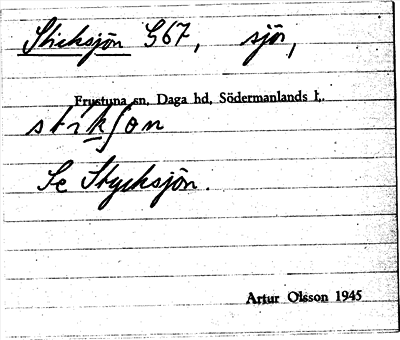 Sticksjön G67, sjö,
Frustuna sn, Daga hd, Södermanlands l.
stikʃøn
Se Stycksjön.
Artur Olsson 1945